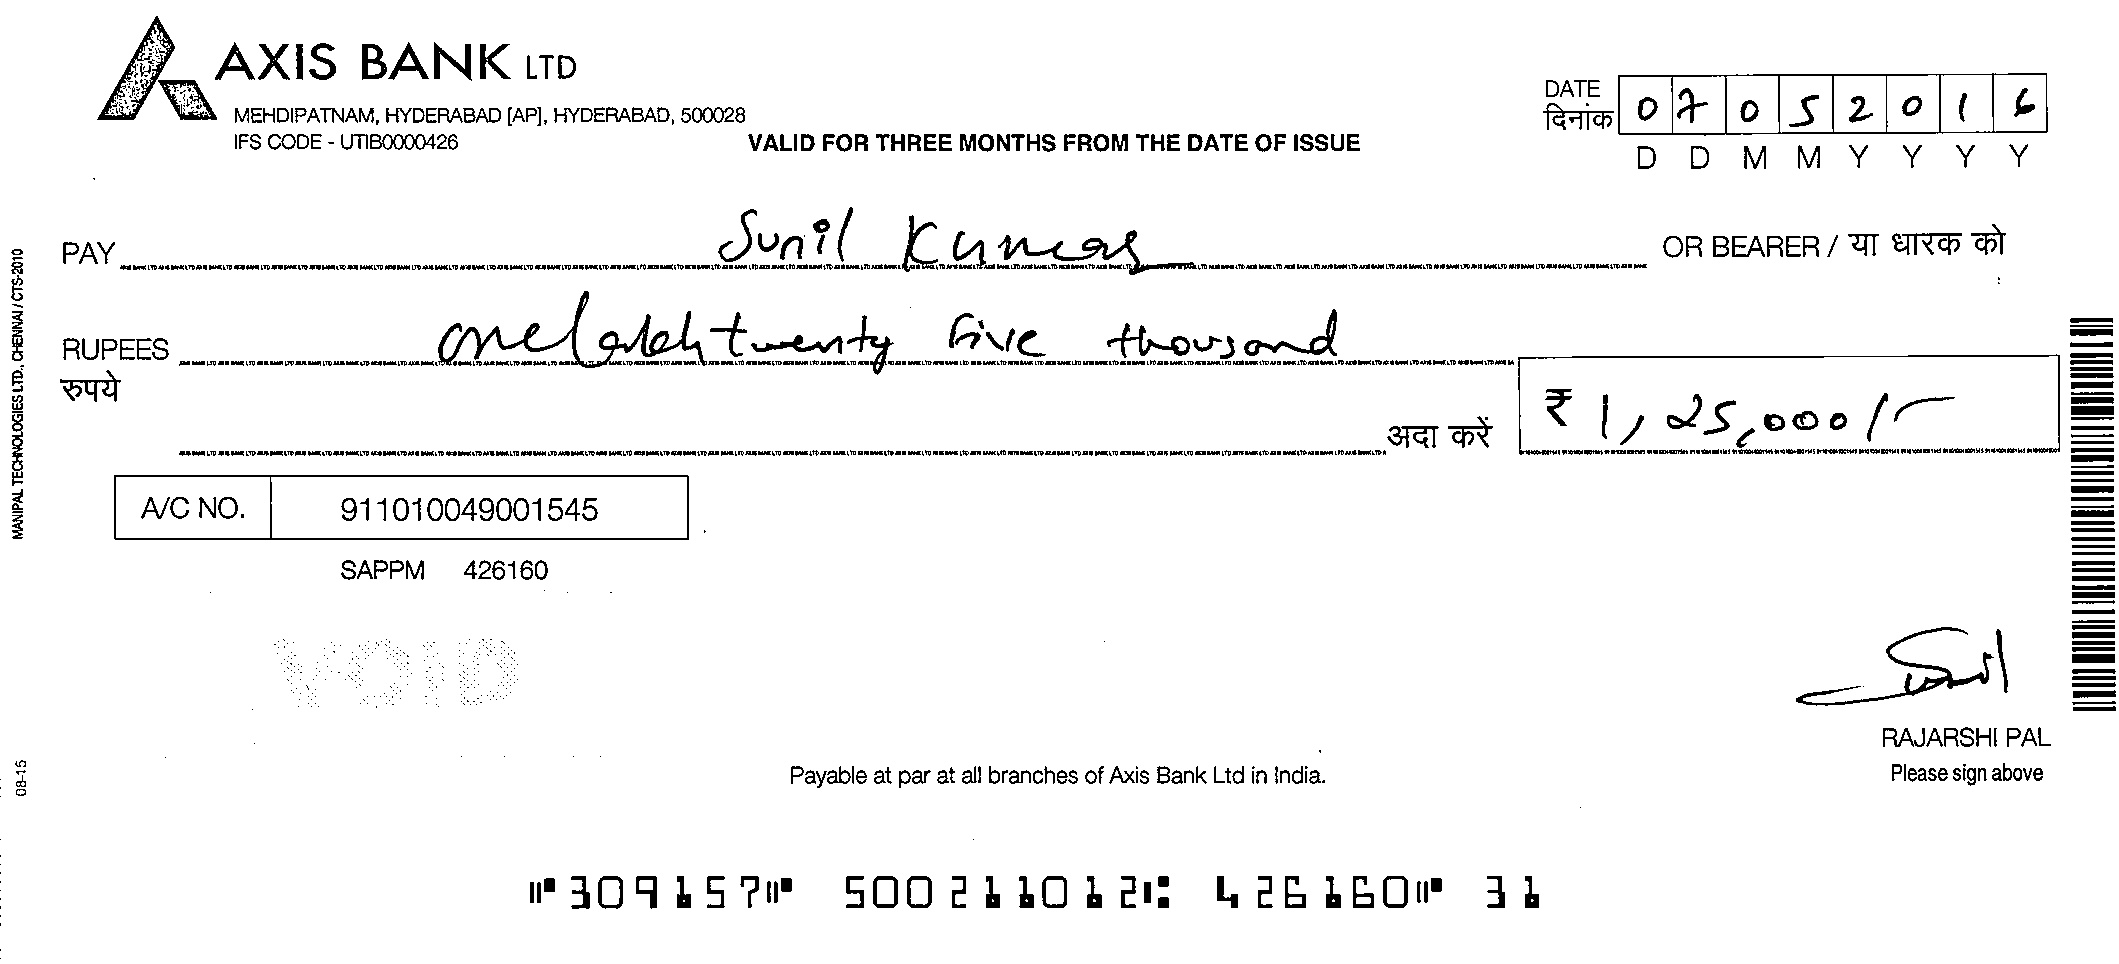 AXIS BANK LTD
MEHDIPATNAM, HYDERABAD [AP], HYDERABAD, 500028
IFS CODE - UTIB0000426
VALID FOR THREE MONTHS FROM THE DATE OF ISSUE
DATE
दिनांक
0 7 0 5 2 0 1 6
D D M M Y Y Y Y
PAY Sunil Kumar OR BEARER / या धारक को
RUPEES one lakh twenty five thousand
रुपये
अदा करें ₹ 1,25,000/-
A/C NO. 911010049001545
SAPPM 426160
VOID
RAJARSHI PAL
Please sign above
Payable at par at all branches of Axis Bank Ltd in India.
⑈309157⑈ 500211012⑆ 426160⑈ 31
MANIPAL TECHNOLOGIES LTD., CHENNAI / CTS-2010
08-15
Sunil